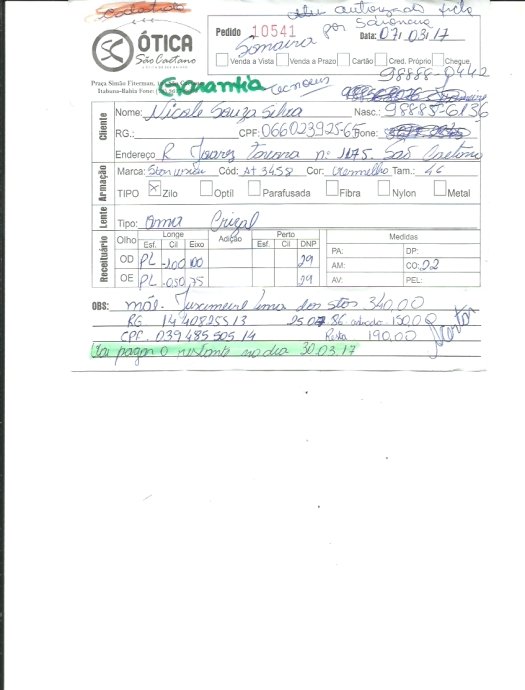 autorizado pela
por
Pedido 10541 Data: 07/03/17
ÓTICA
São Caetano
Venda a Vista Venda a Prazo Cartão Cred. Próprio Cheque
98888-0442
Praça Simão Fiterman,
Itabuna-Bahia Fone:
Garantia
Cliente
Nome: Nicole Souza Silva Nasc.: 98885-6136
RG.: CPF: 06602392565 Fone:
Endereço R Juarez Tavora nº 1175. São Caetano
Armação
Marca: Cód: At 3458 Cor: Vermelho Tam.: 46
TIPO Zilo Optil Parafusada Fibra Nylon Metal
Lente
Tipo: Crizal
Receituário
Olho Longe Adição Perto DNP Medidas
Esf. Cil Eixo Esf. Cil
PA: DP:
OD PL -200 29 AM: CO: 22
OE PL -050 75 29 AV: PEL:
OBS: mãe. Jucimeire Lima dos Stos 340,00
RG 1440825513 25.07.86 150,00
CPF. 039485505 14 Resta 190,00
Vai pagar o restante no dia 30.03.17